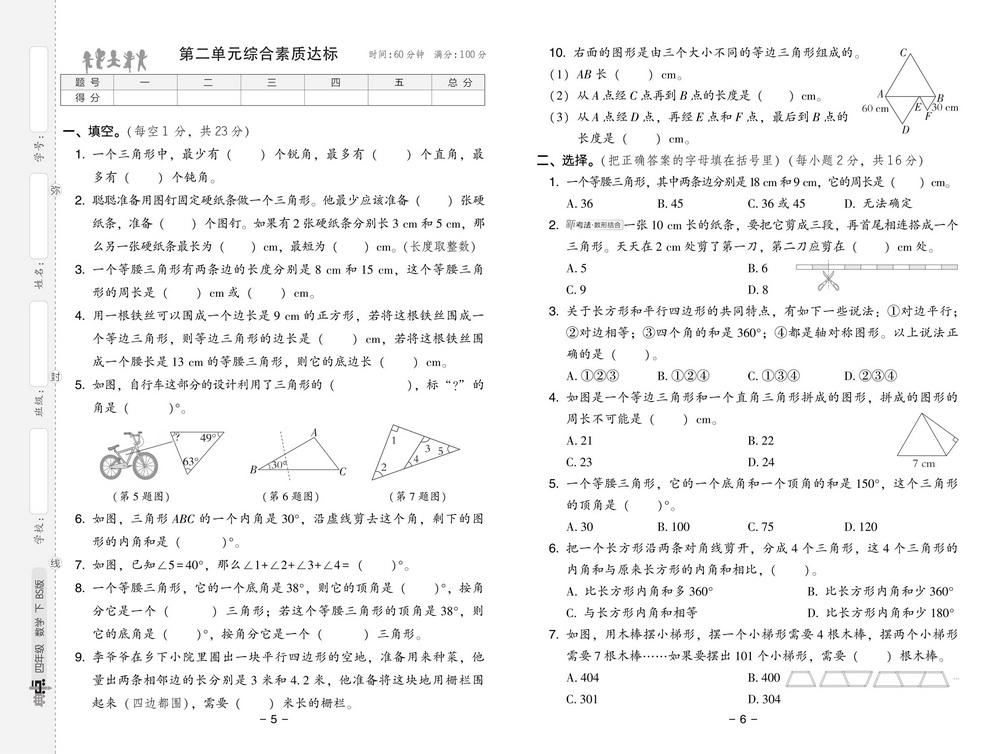 学号：
姓名：
班级：
学校：
弥
封
线
典中点 四年级 数学 下 BS版
第二单元综合素质达标
时间：60分钟 满分：100分
题号 一 二 三 四 五 总分
得分
一、填空。（每空1分，共23分）
1. 一个三角形中，最少有（ ）个锐角，最多有（ ）个直角，最
多有（ ）个钝角。
2. 聪聪准备用图钉固定硬纸条做一个三角形。他最少应该准备（ ）张硬
纸条，准备（ ）个图钉。如果有2张硬纸条分别长3 cm和5 cm，那
么另一张硬纸条最长为（ ）cm，最短为（ ）cm。（长度取整数）
3. 一个等腰三角形有两条边的长度分别是8 cm和15 cm，这个等腰三角
形的周长是（ ）cm或（ ）cm。
4. 用一根铁丝可以围成一个边长是9 cm的正方形，若将这根铁丝围成一
个等边三角形，则等边三角形的边长是（ ）cm，若将这根铁丝围
成一个腰长是13 cm的等腰三角形，则它的底边长（ ）cm。
5. 如图，自行车这部分的设计利用了三角形的（ ），标“?”的
角是（ ）°。
? 49° 63°
A B C 30°
1 2 3 4 5
（第5题图） （第6题图） （第7题图）
6. 如图，三角形ABC的一个内角是30°，沿虚线剪去这个角，剩下的图
形的内角和是（ ）°。
7. 如图，已知∠5=40°，那么∠1+∠2+∠3+∠4=（ ）°。
8. 一个等腰三角形，它的一个底角是38°，则它的顶角是（ ）°，按角
分它是一个（ ）三角形；若这个等腰三角形的顶角是38°，则
它的底角是（ ）°，按角分它是一个（ ）三角形。
9. 李爷爷在乡下小院里圈出一块平行四边形的空地，准备用来种菜，他
量出两条相邻边的长分别是3米和4.2米，他准备将这块地用栅栏围
起来（四边都围），需要（ ）米长的栅栏。
－5－
10. 右面的图形是由三个大小不同的等边三角形组成的。
（1）AB长（ ）cm。
（2）从A点经C点再到B点的长度是（ ）cm。
（3）从A点经D点，再经E点和F点，最后到B点的
长度是（ ）cm。
C
A B
60 cm E 30 cm
F
D
二、选择。（把正确答案的字母填在括号里）（每小题2分，共16分）
1. 一个等腰三角形，其中两条边分别是18 cm和9 cm，它的周长是（ ）cm。
A. 36 B. 45 C. 36或45 D. 无法确定
2. 新考法·数形结合 一张10 cm长的纸条，要把它剪成三段，再首尾相连搭成一个
三角形。天天在2 cm处剪了第一刀，第二刀应剪在（ ）cm处。
A. 5 B. 6
C. 9 D. 8
3. 关于长方形和平行四边形的共同特点，有如下一些说法：①对边平行；
②对边相等；③四个角的和是360°；④都是轴对称图形。以上说法正
确的是（ ）。
A. ①②③ B. ①②④ C. ①③④ D. ②③④
4. 如图是一个等边三角形和一个直角三角形拼成的图形，拼成的图形的
周长不可能是（ ）cm。
A. 21 B. 22
C. 23 D. 24
7 cm
5. 一个等腰三角形，它的一个底角和一个顶角的和是150°，这个三角形
的顶角是（ ）°。
A. 30 B. 100 C. 75 D. 120
6. 把一个长方形沿两条对角线剪开，分成4个三角形，这4个三角形的
内角和与原来长方形的内角和相比，（ ）。
A. 比长方形内角和多360° B. 比长方形内角和少360°
C. 与长方形内角和相等 D. 比长方形内角和少180°
7. 如图，用木棒摆小梯形，摆一个小梯形需要4根木棒，摆两个小梯形
需要7根木棒……如果要摆出101个小梯形，需要（ ）根木棒。
A. 404 B. 400 …
C. 301 D. 304
－6－